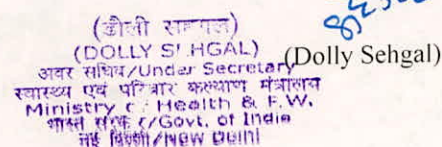 (डौली सहगल)
(DOLLY SEHGAL) (Dolly Sehgal)
अवर सचिव/Under Secretary
स्वास्थ्य एवं परिवार कल्याण मंत्रालय
Ministry of Health & F.W.
भारत सरकार/Govt. of India
नई दिल्ली/New Delhi